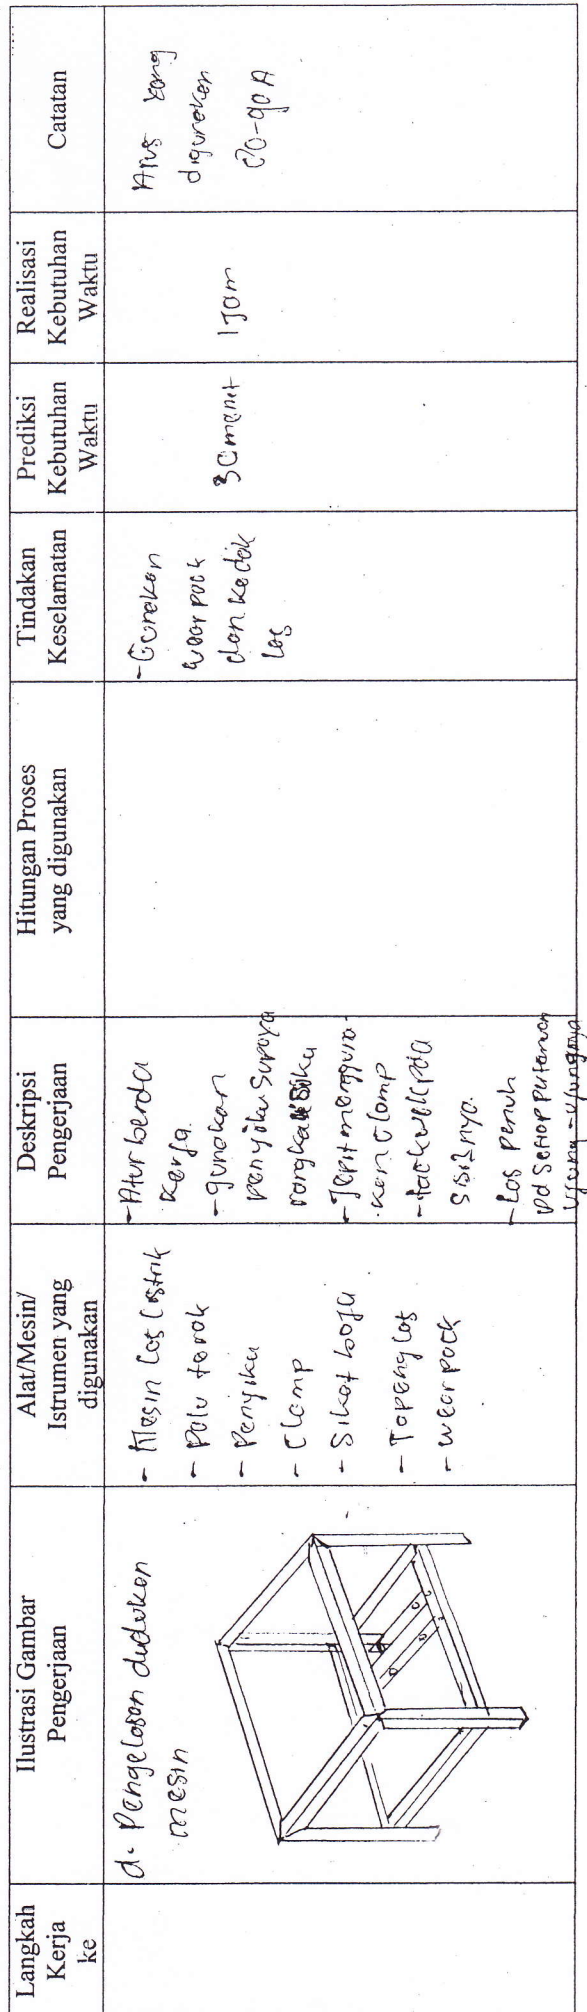 Langkah
Kerja
ke
Ilustrasi Gambar
Pengerjaan
Alat/Mesin/
Istrumen yang
digunakan
Deskripsi
Pengerjaan
Hitungan Proses
yang digunakan
Tindakan
Keselamatan
Prediksi
Kebutuhan
Waktu
Realisasi
Kebutuhan
Waktu
Catatan
d. Pengelasan dudukan
mesin
- Mesin Las Listrik
- Palu terak
- Penyiku
- Clamp
- Sikat baja
- Topeng las
- wearpack
- Atur benda
kerja.
- gunakan
penyiku supaya
rangka siku
- Jepit menggunakan
kan clamp
- tackweld pada
sisi2nya.
- Las penuh
pd setiap
ujung-ujungnya
- Gunakan
wearpack
dan kedok
las
30 menit
1 jam
Arus yang
digunakan
-90 A